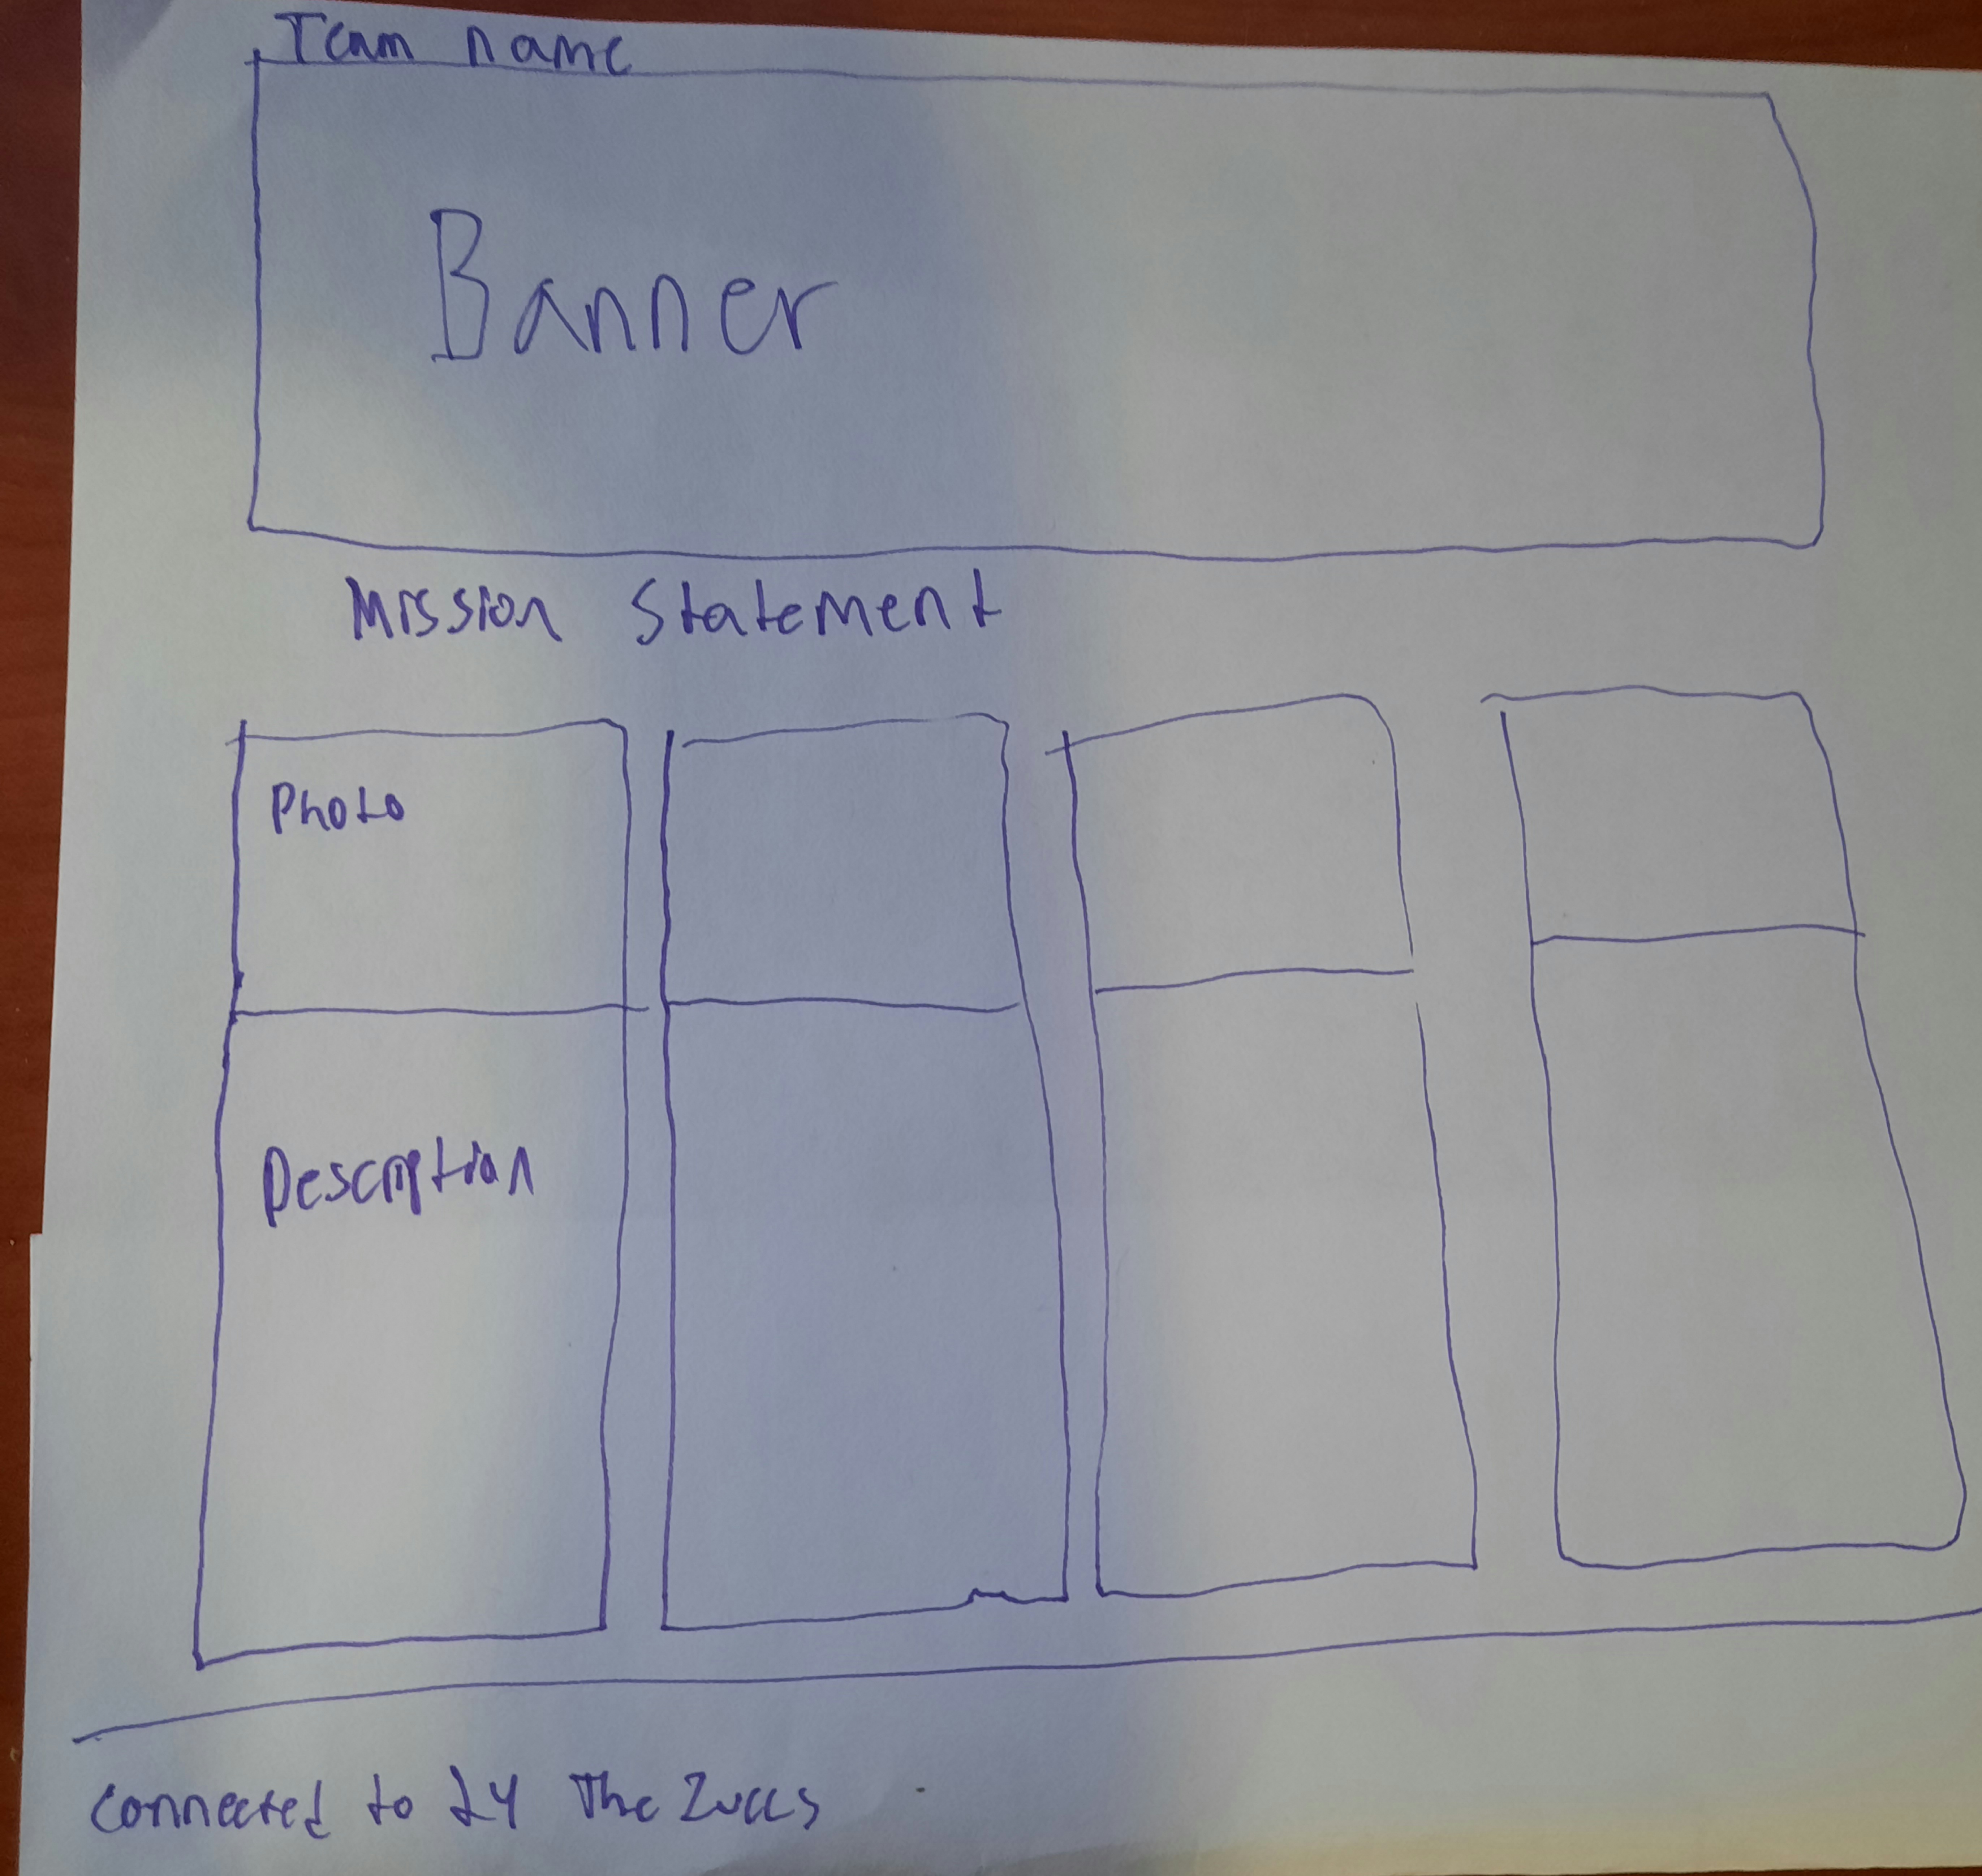 Team name
Banner
Mission Statement
Photo
Description
Connected to 24 The Zuccs